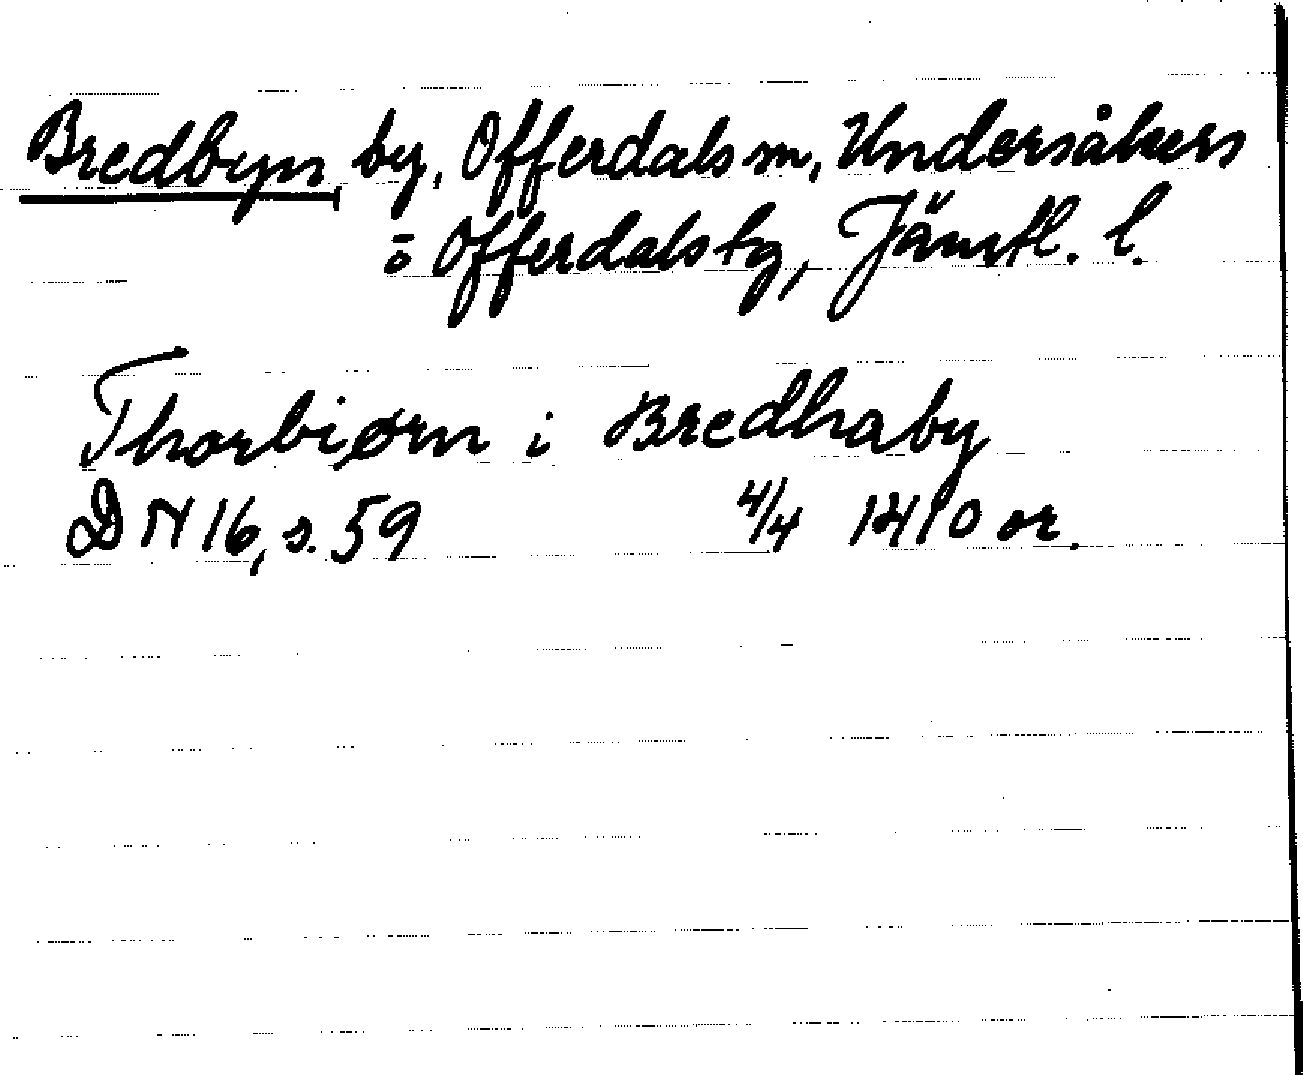 Bredbyn by, Offerdals sn, Undersåkers
o Offerdals tg, Jämtl. l.
Thorbiørn i Bredhaby
DN 16, s. 59 4/4 1410 or.